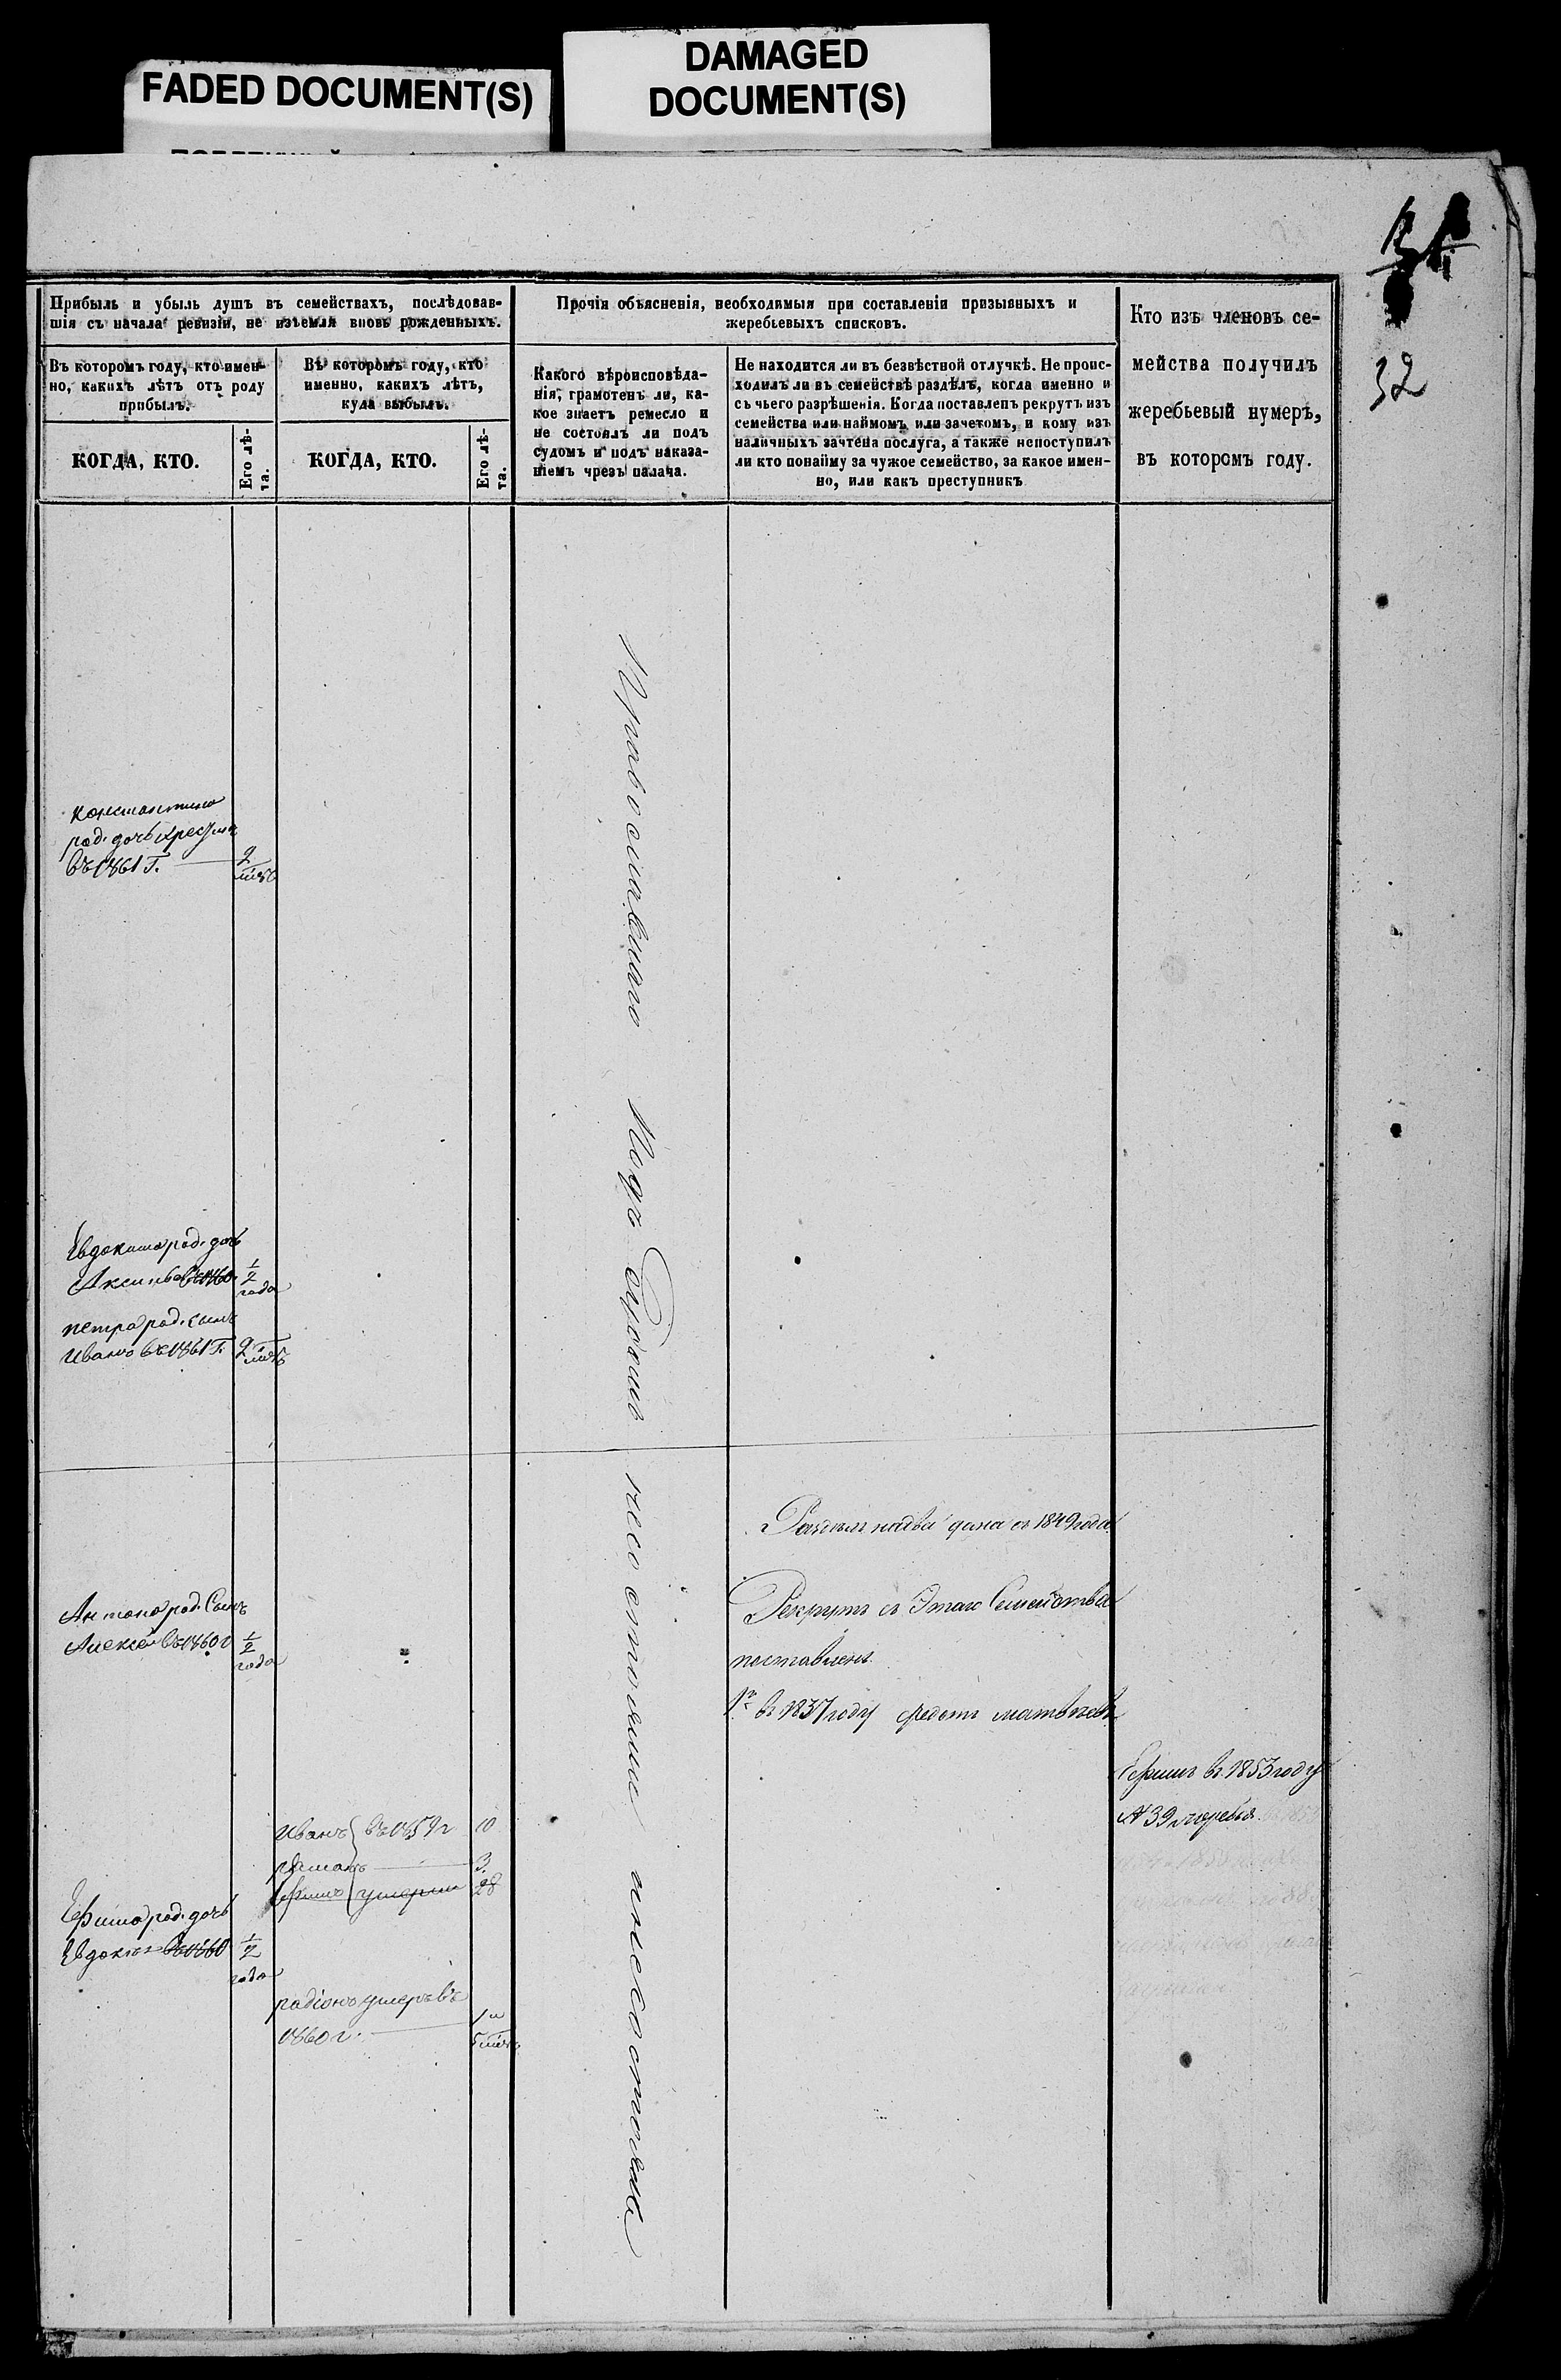 FADED DOCUMENT(S)
DAMAGED
DOCUMENT(S)
32
Прибыль и убыль душъ въ семействахъ, послѣдовав-
шія съ начала ревизіи, не изъемля вновь рожденныхъ.
Въ которомъ году, кто имен-
но, какихъ лѣтъ отъ роду
прибылъ.
КОГДА, КТО.
Его лѣ-
та.
Въ которомъ году, кто
именно, какихъ лѣтъ,
куда выбылъ.
КОГДА, КТО.
Его лѣ-
та.
Прочія объясненія, необходимыя при составленіи призывныхъ и
жеребьевыхъ списковъ.
Какого вѣроисповѣда-
нія, грамотенъ ли, ка-
кое знаетъ ремесло и
не состоялъ ли подъ
судомъ и подъ наказа-
ніемъ чрезъ палача.
Не находится ли въ безвѣстной отлучкѣ. Не проис-
ходилъ ли въ семействѣ раздѣлъ, когда именно и
съ чьего разрѣшенія. Когда поставленъ рекрутъ изъ
семейства или наймомъ или зачетомъ, и кому изъ
наличныхъ зачтена послуга, а также непоступилъ
ли кто понайму за чужое семейство, за какое имен-
но, или какъ преступникъ
Кто изъ членовъ се-
мейства получилъ
жеребьевый нумеръ,
въ которомъ году.
Константина
род. дочь
въ 1861 г. 2
Православнаго Подъ Судомъ несостояли и несостоятъ
Евдокима род. дочь
Аксинья въ 1860 1/2
года
Петра род. сынъ
Иванъ въ 1861 г. 2
съ 1849 года
Антона род. Сынъ
Алексѣй въ 1860 г 1/2
года
Рекрутъ съ Этаго Семейства
поставленъ
1й въ 1837 году Федотъ Матвѣевъ
Ефимъ въ 1853 году
№ 39 жеребья
Иванъ въ 1859 г 10
Романъ 3
Ефимъ умерли 28
Ефима род. дочь
въ 1860 1/2
года
Радіонъ умеръ въ
1860 г. 1 и
5